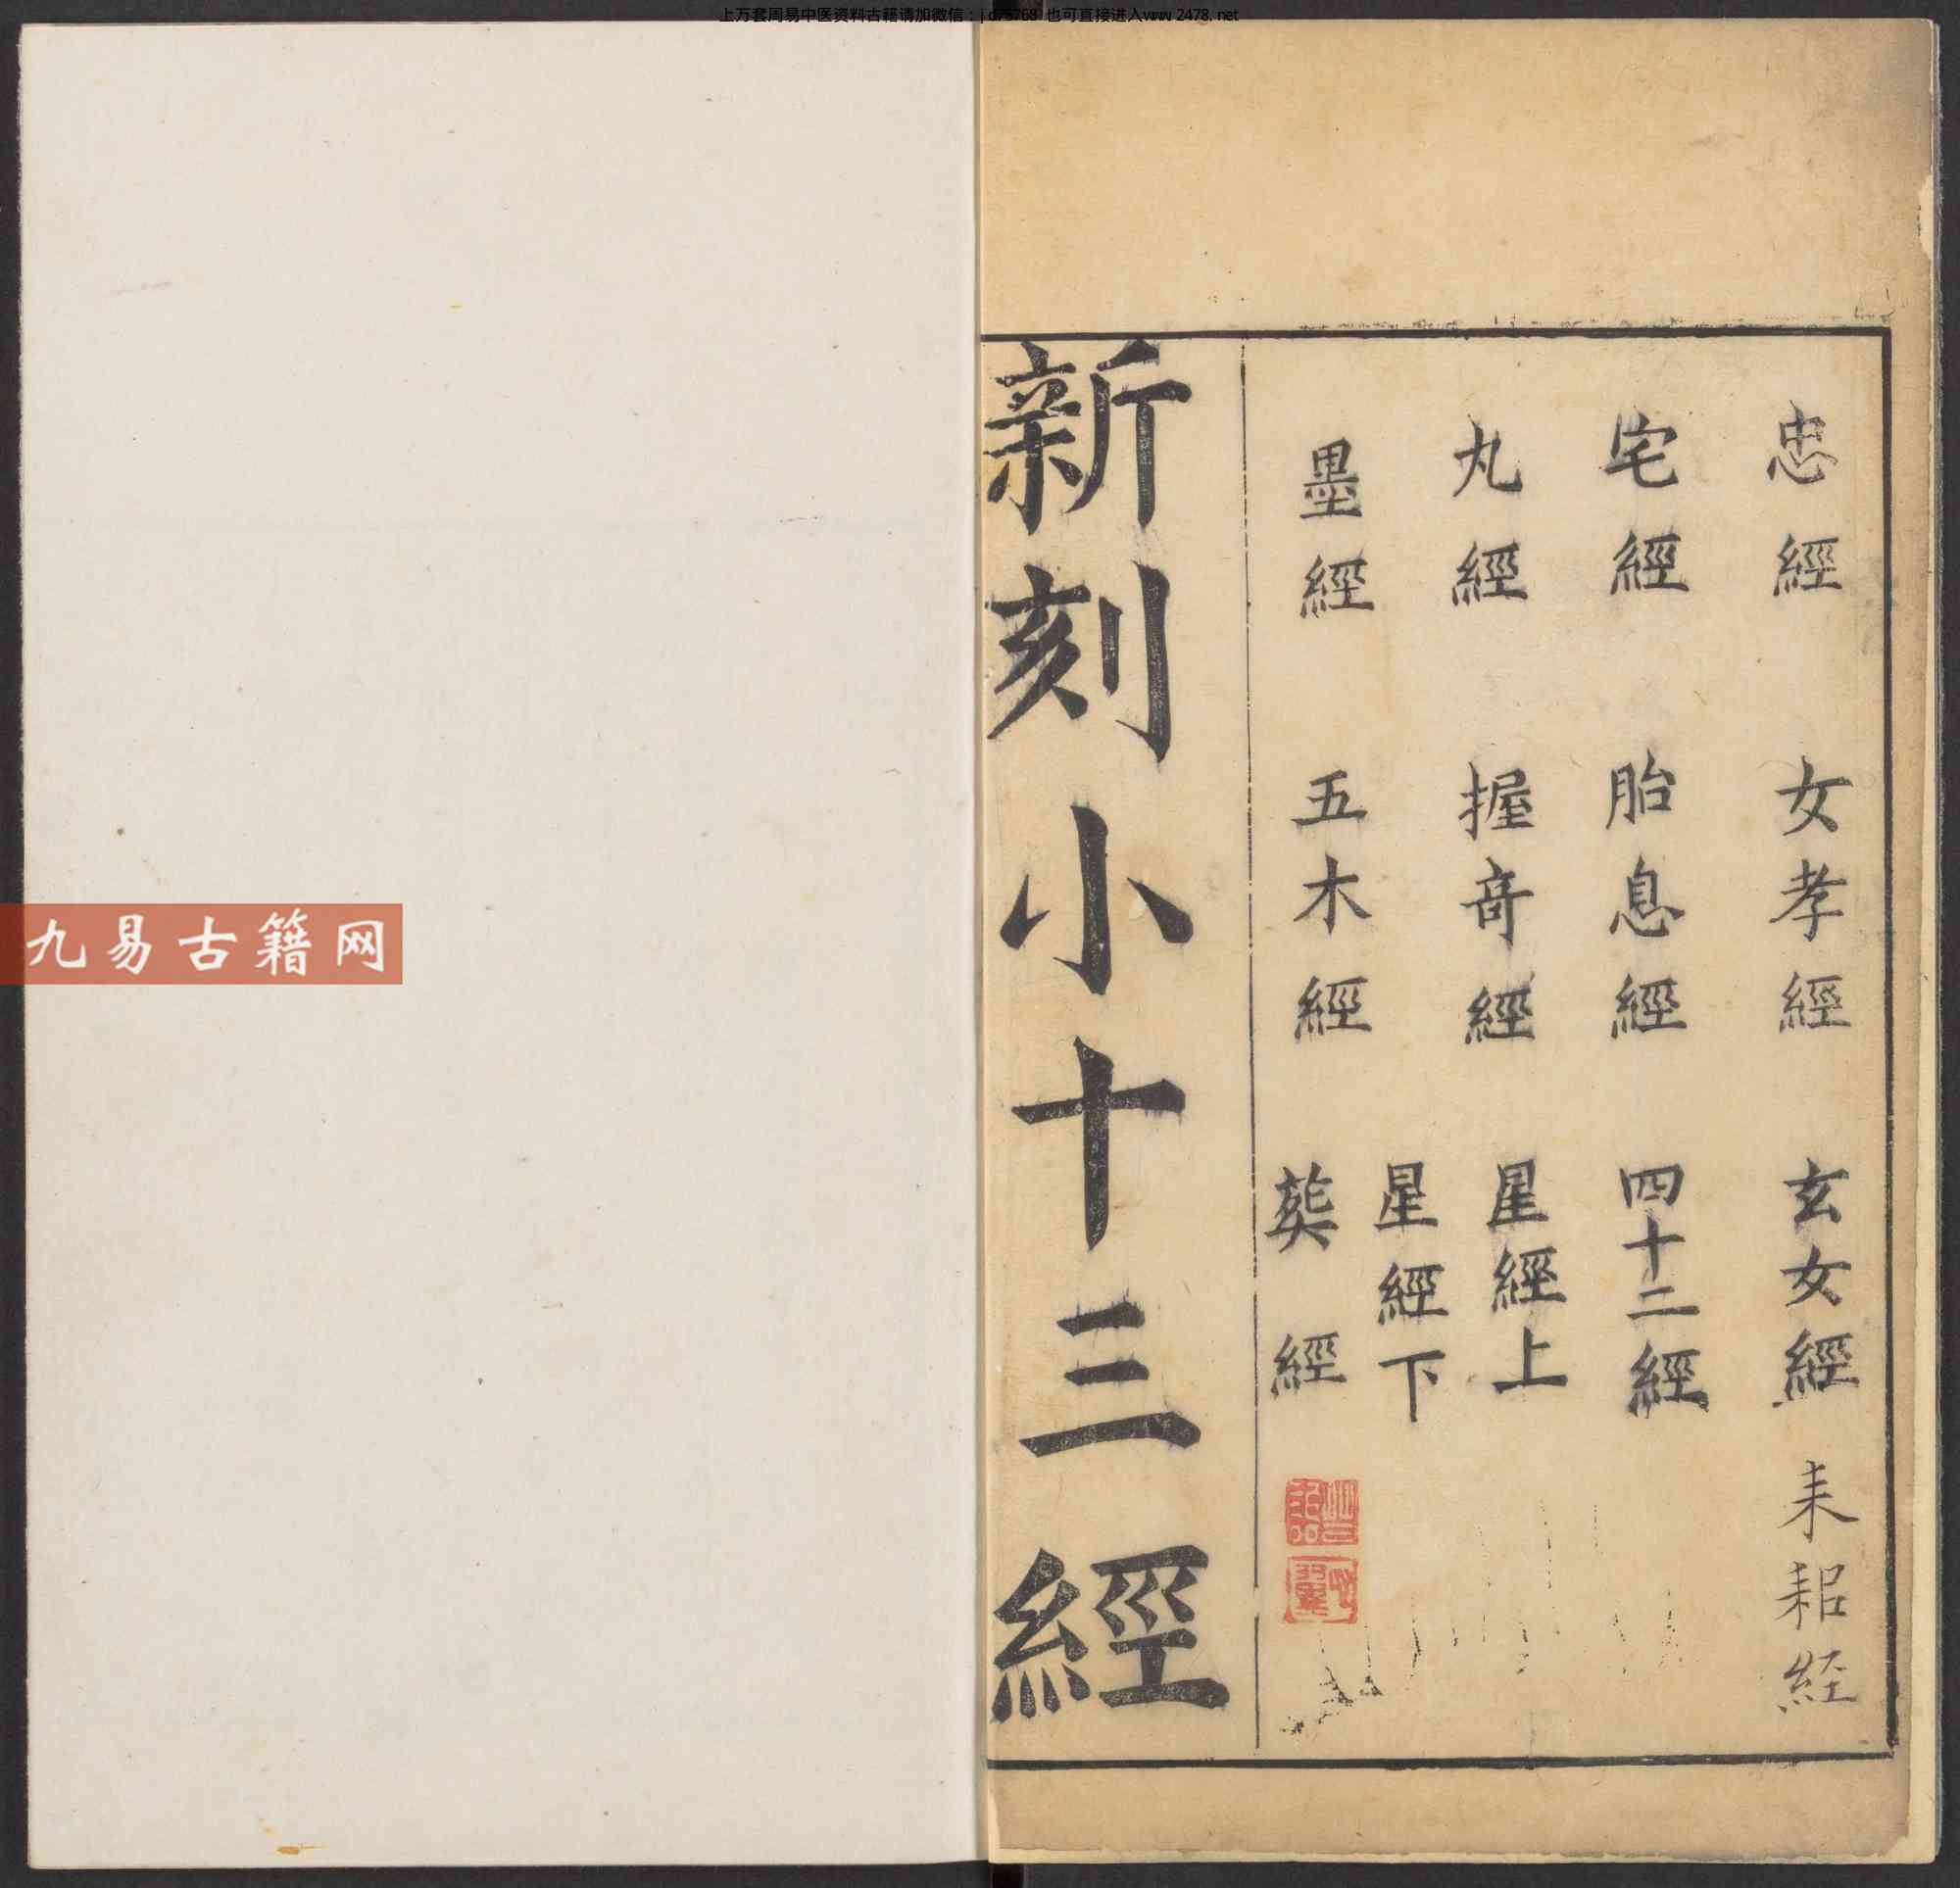 上万套周易中医资料古籍请加微信：jd78768 也可直接进入www.2478.net
忠經 女孝經 玄女經 耒耜经
宅經 胎息經 四十二經
丸經 握奇經 星經上
星經下
墨經 五木經 葬經
新刻小十三經
九易古籍网